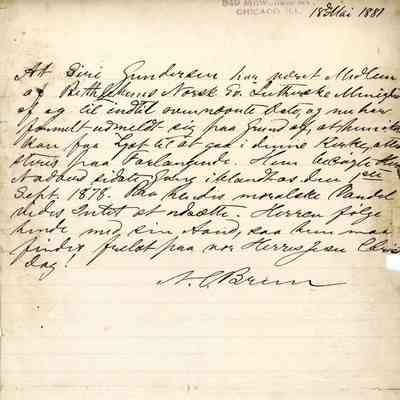 CHICAGO ILL.
18de Mai 1881
At Siri Gundersen har været Medlem
af Bethlehems Norsk Ev. Lutherske Menighed
og til indtil ovennævnte Dato, og nu har
formelt udmeldt sig paa Grund af, at hun ikke
kan faa Lyst til at gaa i denne Kirke,
paa Forlangende. Hun
Nadverd sidste Gang iblandt os den 1ste
Sept. 1878. Paa hendes moralske Vandel
vides Intet at udsætte. Herren følge
hende med sin Aand, saa hun maa
findes frelst paa vor Herres Jesu Christi
Dag!
N. C. Brun